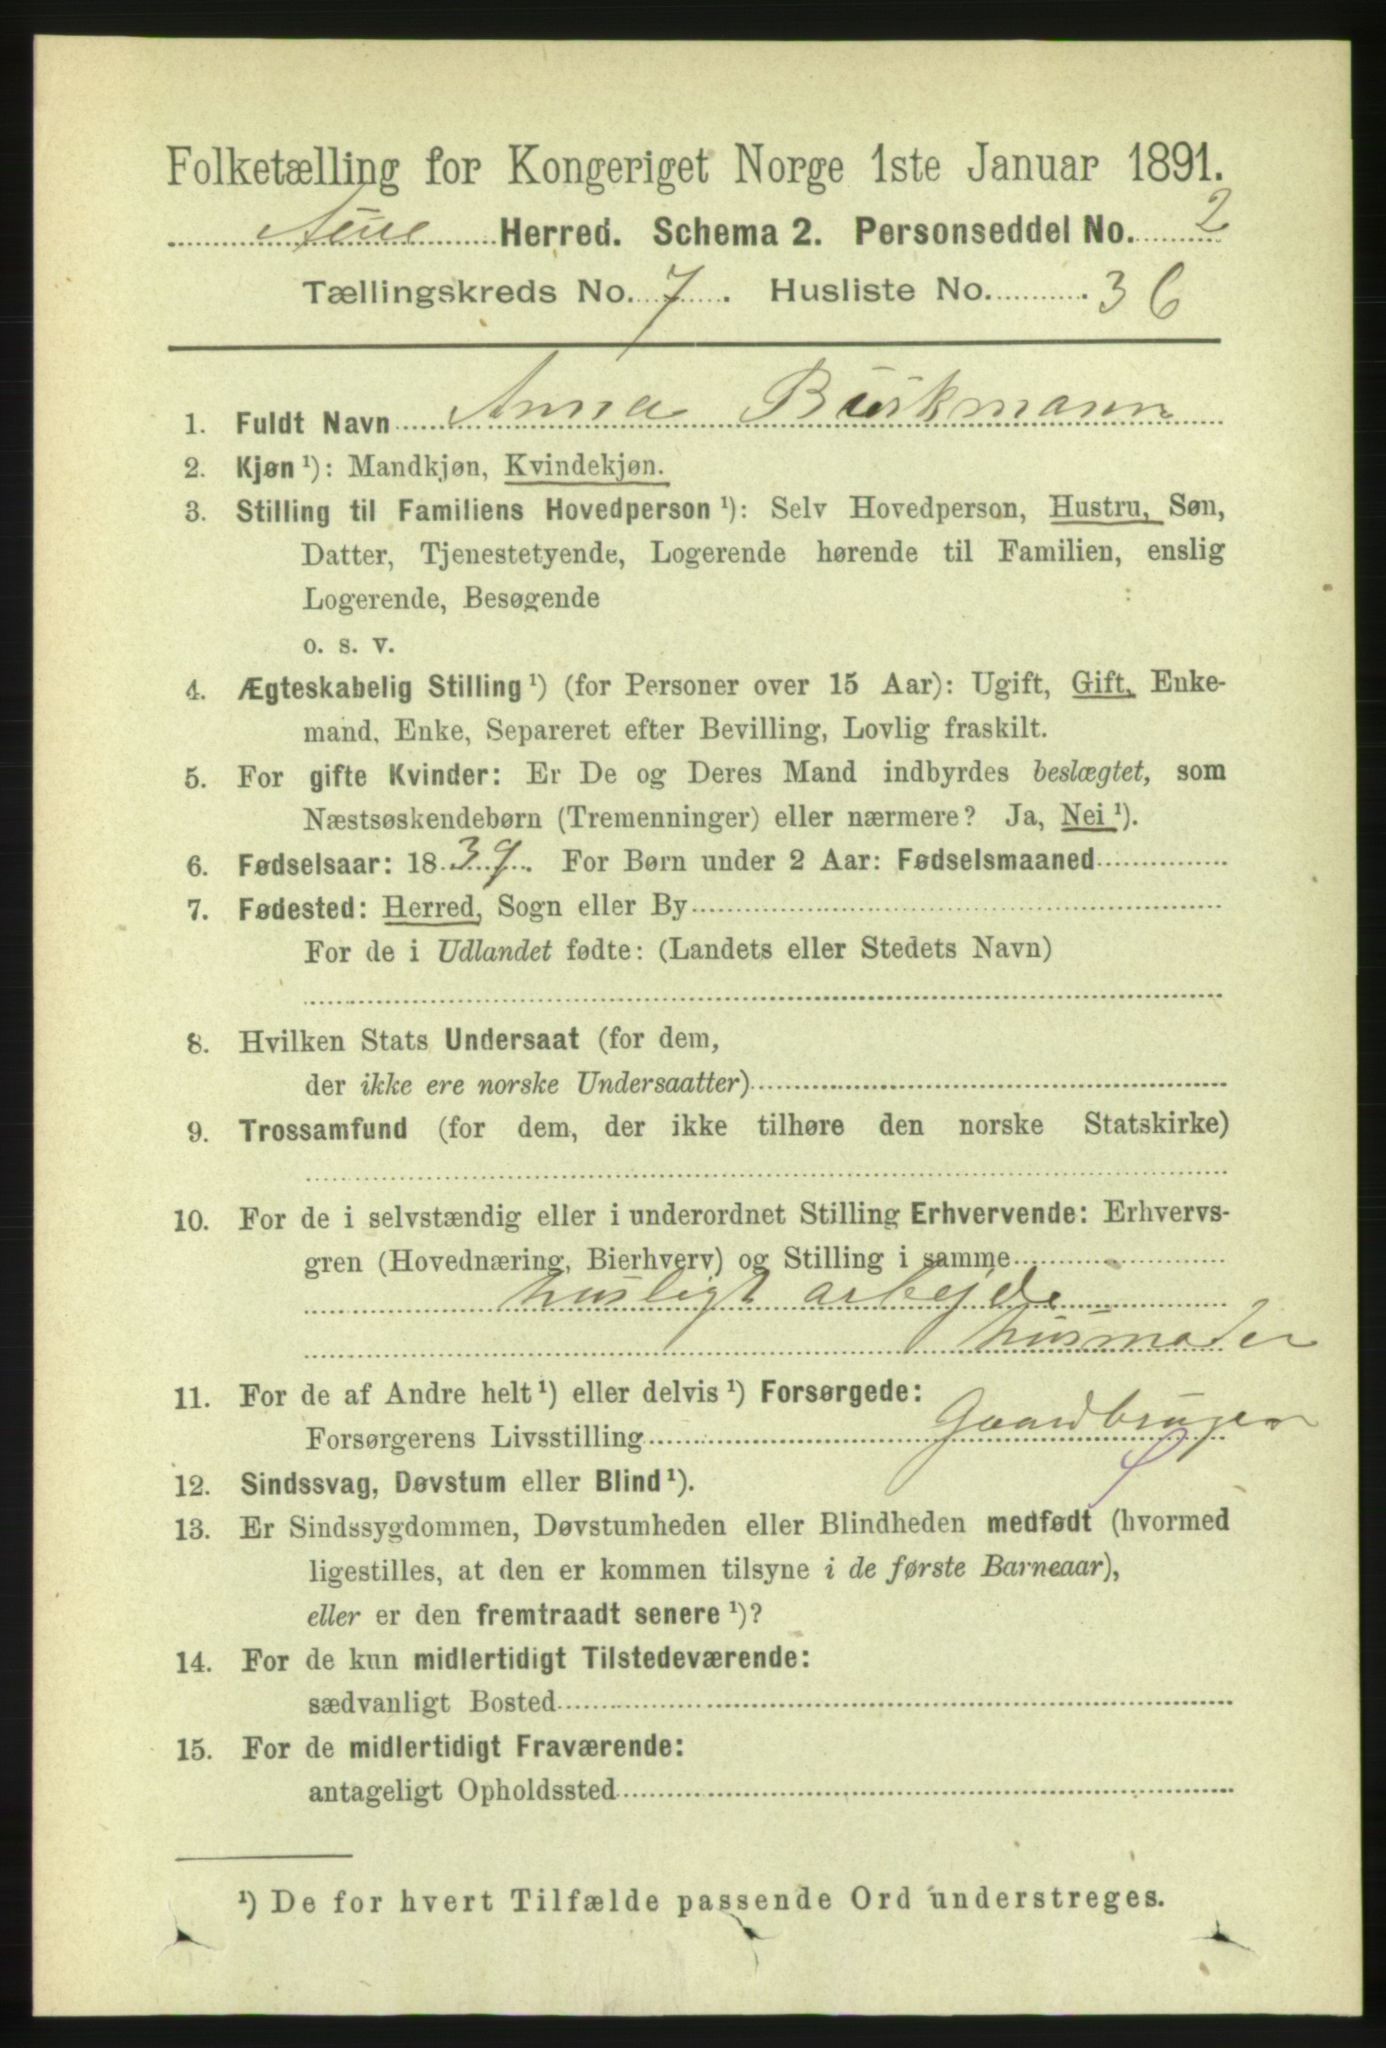 Folketælling for Kongeriget Norge 1ste Januar 1891.
Aure Herred. Schema 2. Personseddel No. 2
Tællingskreds No. 7. Husliste No. 36
1. Fuldt Navn Anna Burkmann
2. Kjøn ¹): Mandkjøn, Kvindekjøn.
3. Stilling til Familiens Hovedperson ¹): Selv Hovedperson, Hustru, Søn,
Datter, Tjenestetyende, Logerende hørende til Familien, enslig
Logerende, Besøgende
o. s. v.
4. Ægteskabelig Stilling ¹) (for Personer over 15 Aar): Ugift, Gift, Enke-
mand, Enke, Separeret efter Bevilling, Lovlig fraskilt.
5. For gifte Kvinder: Er De og Deres Mand indbyrdes beslægtet, som
Næstsøskendebørn (Tremenninger) eller nærmere? Ja, Nei ¹).
6. Fødselsaar: 1839. For Børn under 2 Aar: Fødselsmaaned
7. Fødested: Herred, Sogn eller By
For de i Udlandet fødte: (Landets eller Stedets Navn)
8. Hvilken Stats Undersaat (for dem,
der ikke ere norske Undersaatter)
9. Trossamfund (for dem, der ikke tilhøre den norske Statskirke)
10. For de i selvstændig eller i underordnet Stilling Erhvervende: Erhvervs-
gren (Hovednæring, Bierhverv) og Stilling i samme
husligt arbejde
husmoder
11. For de af Andre helt ¹) eller delvis ¹) Forsørgede:
Forsørgerens Livsstilling Gaardbruger
12. Sindssvag, Døvstum eller Blind ¹).
13. Er Sindssygdommen, Døvstumheden eller Blindheden medfødt (hvormed
ligestilles, at den er kommen tilsyne i de første Barneaar),
eller er den fremtraadt senere ¹)?
14. For de kun midlertidigt Tilstedeværende:
sædvanligt Bosted
15. For de midlertidigt Fraværende:
antageligt Opholdssted
¹) De for hvert Tilfælde passende Ord understreges.